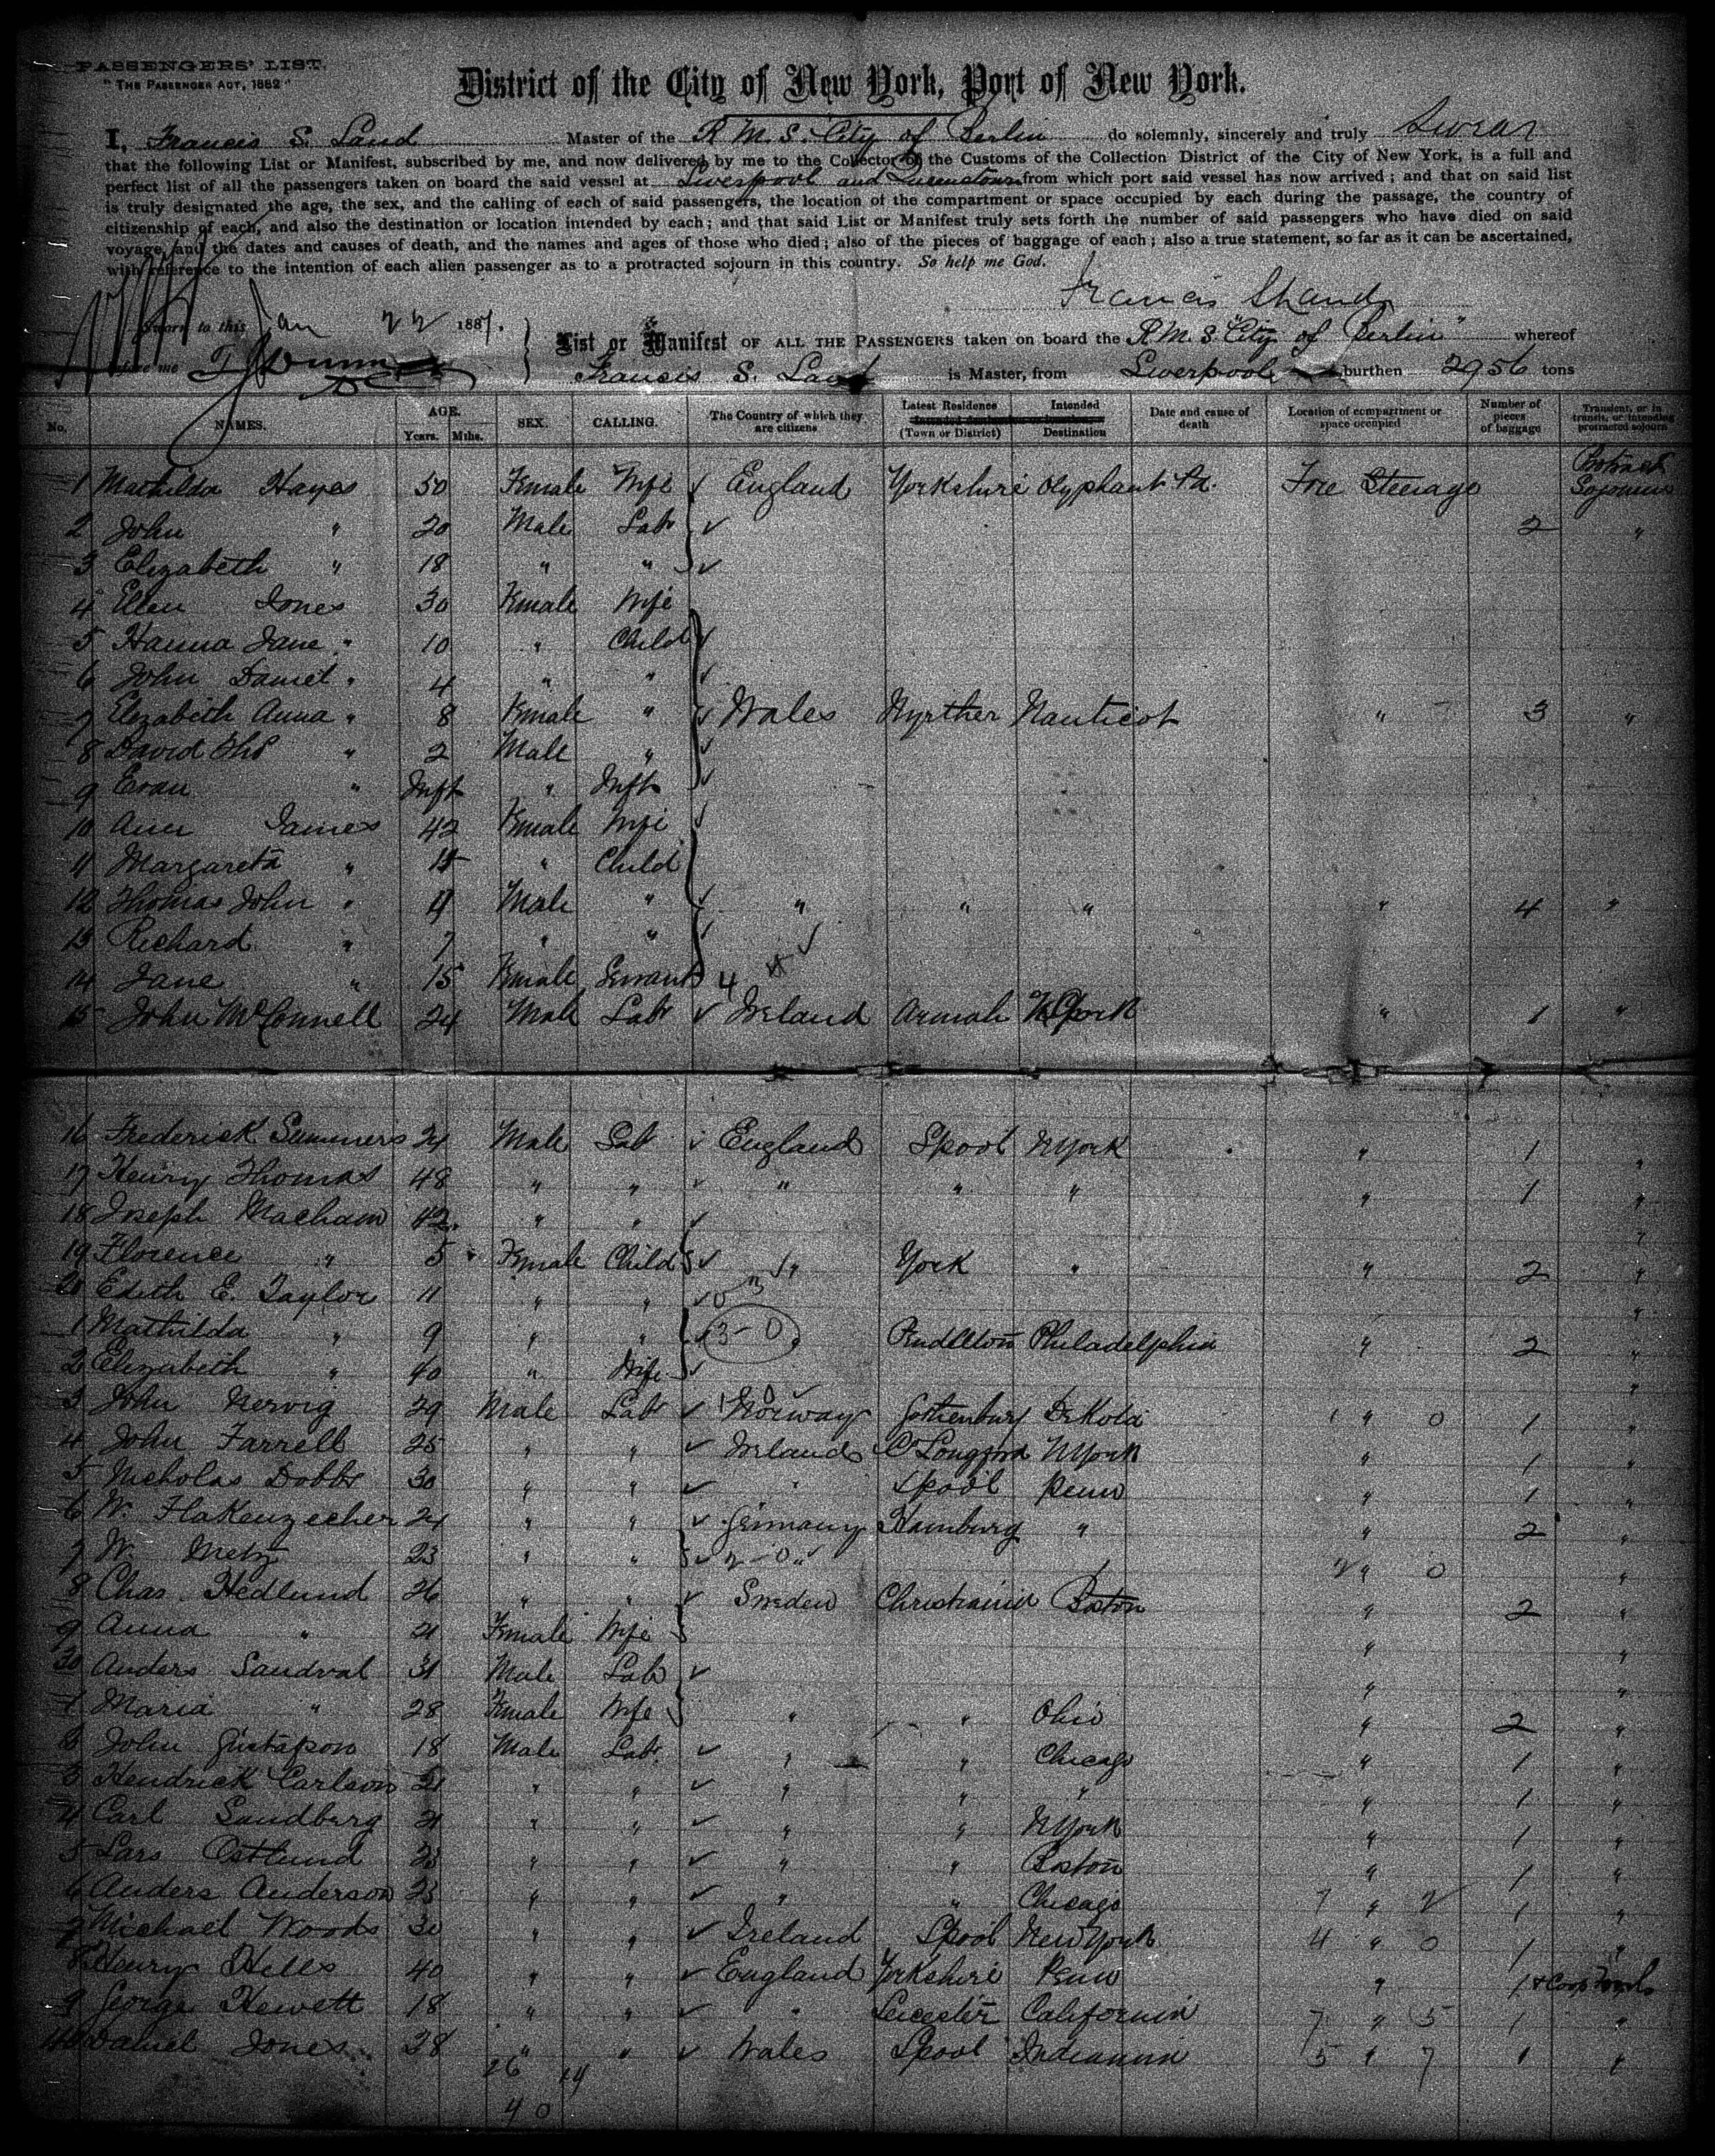 PASSENGERS' LIST.
"THE PASSENGER ACT, 1882"
District of the City of New York, Port of New York.
I, Francis S. Land Master of the R.M.S. City of Berlin do solemnly, sincerely and truly Swear
that the following List or Manifest, subscribed by me, and now delivered by me to the Collector of the Customs of the Collection District of the City of New York, is a full and
perfect list of all the passengers taken on board the said vessel at Liverpool and Queenstown from which port said vessel has now arrived; and that on said list
is truly designated the age, the sex, and the calling of each of said passengers, the location of the compartment or space occupied by each during the passage, the country of
citizenship of each, and also the destination or location intended by each; and that said List or Manifest truly sets forth the number of said passengers who have died on said
voyage, and the dates and causes of death, and the names and ages of those who died; also of the pieces of baggage of each; also a true statement, so far as it can be ascertained,
with reference to the intention of each alien passenger as to a protracted sojourn in this country. So help me God.
Francis S Land
Sworn to this Jan 22 1887.
List or Manifest OF ALL THE PASSENGERS taken on board the R.M.S. "City of Berlin" whereof
before me
Francis S. Land is Master, from Liverpool burthen 2956 tons
No. NAMES. AGE. Years. Mths. SEX. CALLING. The Country of which they are citizens Latest Residence (Town or District) Intended Destination Date and cause of death Location of compartment or space occupied Number of pieces of baggage Transient, or in transit, or intending protracted sojourn
1 Mathilda Hayes 50 Female Wife England Yorkshire Olyphant Pa. Fore Steerage Protract Sojourn
2 John " 20 Male Labr 2 "
3 Elizabeth " 18 " "
4 Ellen Jones 30 Female Wife
5 Hanna Jane " 10 " Child
6 John Daniel " 4 " "
7 Elizabeth Anna " 8 Female " Wales Myrther Nanticot " 3 "
8 David Thos " 2 Male "
9 Evan " Inft " Inft
10 Ann James 42 Female Wife
11 Margareta " " Child
12 Thomas John " Male " " " " " 4 "
13 Richard " 7 " "
14 Jane " 15 Female Servant 4
15 John McConnell 24 Male Labr Ireland Armah N York " 1 "
16 Frederick Summers 24 Male Labr England Lpool N York " 1 "
17 Henry Thomas 48 " " " " " " 1 "
18 Joseph Macham 42 " " "
19 Florence " 5 Female Child " York " " 2 "
20 Edith E. Taylor 11 " " "
1 Mathilda " 9 " " 3-0 Pendleton Philadelphia " 2 "
2 Elizabeth " 40 " Wife "
3 John Nervig 29 Male Labr Norway Gothenburg Dekota 1 " 0 1 "
4 John Farrell 25 " " Ireland Co Longford N York " 1 "
5 Nicholas Dobbs 30 " " " Lpool Penn " 1 "
6 W. Flakenzecher 24 " " Germany Hamburg " " 2 "
7 W. Metz 23 " " 2-0 " 2 " 0 "
8 Chas Hedlund 26 " " Sweden Christiania Boston " 2 "
9 Anna " 21 Female Wife " "
30 Anders Sandval 31 Male Labr " "
1 Maria " 28 Female Wife " " Ohio " 2 "
2 John Gustafson 18 Male Labr " " Chicago " 1 "
3 Hendrick Carlson 21 " " " " " " 1 "
4 Carl Sandberg 21 " " " " N York " 1 "
5 Lars Ostlund 23 " " " " Boston " 1 "
6 Anders Anderson 23 " " " " Chicago 7 " 2 1 "
7 Michael Woods 30 " " Ireland Lpool New York 4 " 0 1 "
8 Henry Hells 40 " " England Yorkshire Penn " 1
9 George Hewett 18 " " " Leicester California 7 " 5 1 "
40 Daniel Jones 28 " " Wales Lpool Indianna 5 " 7 1 "
26 14
40